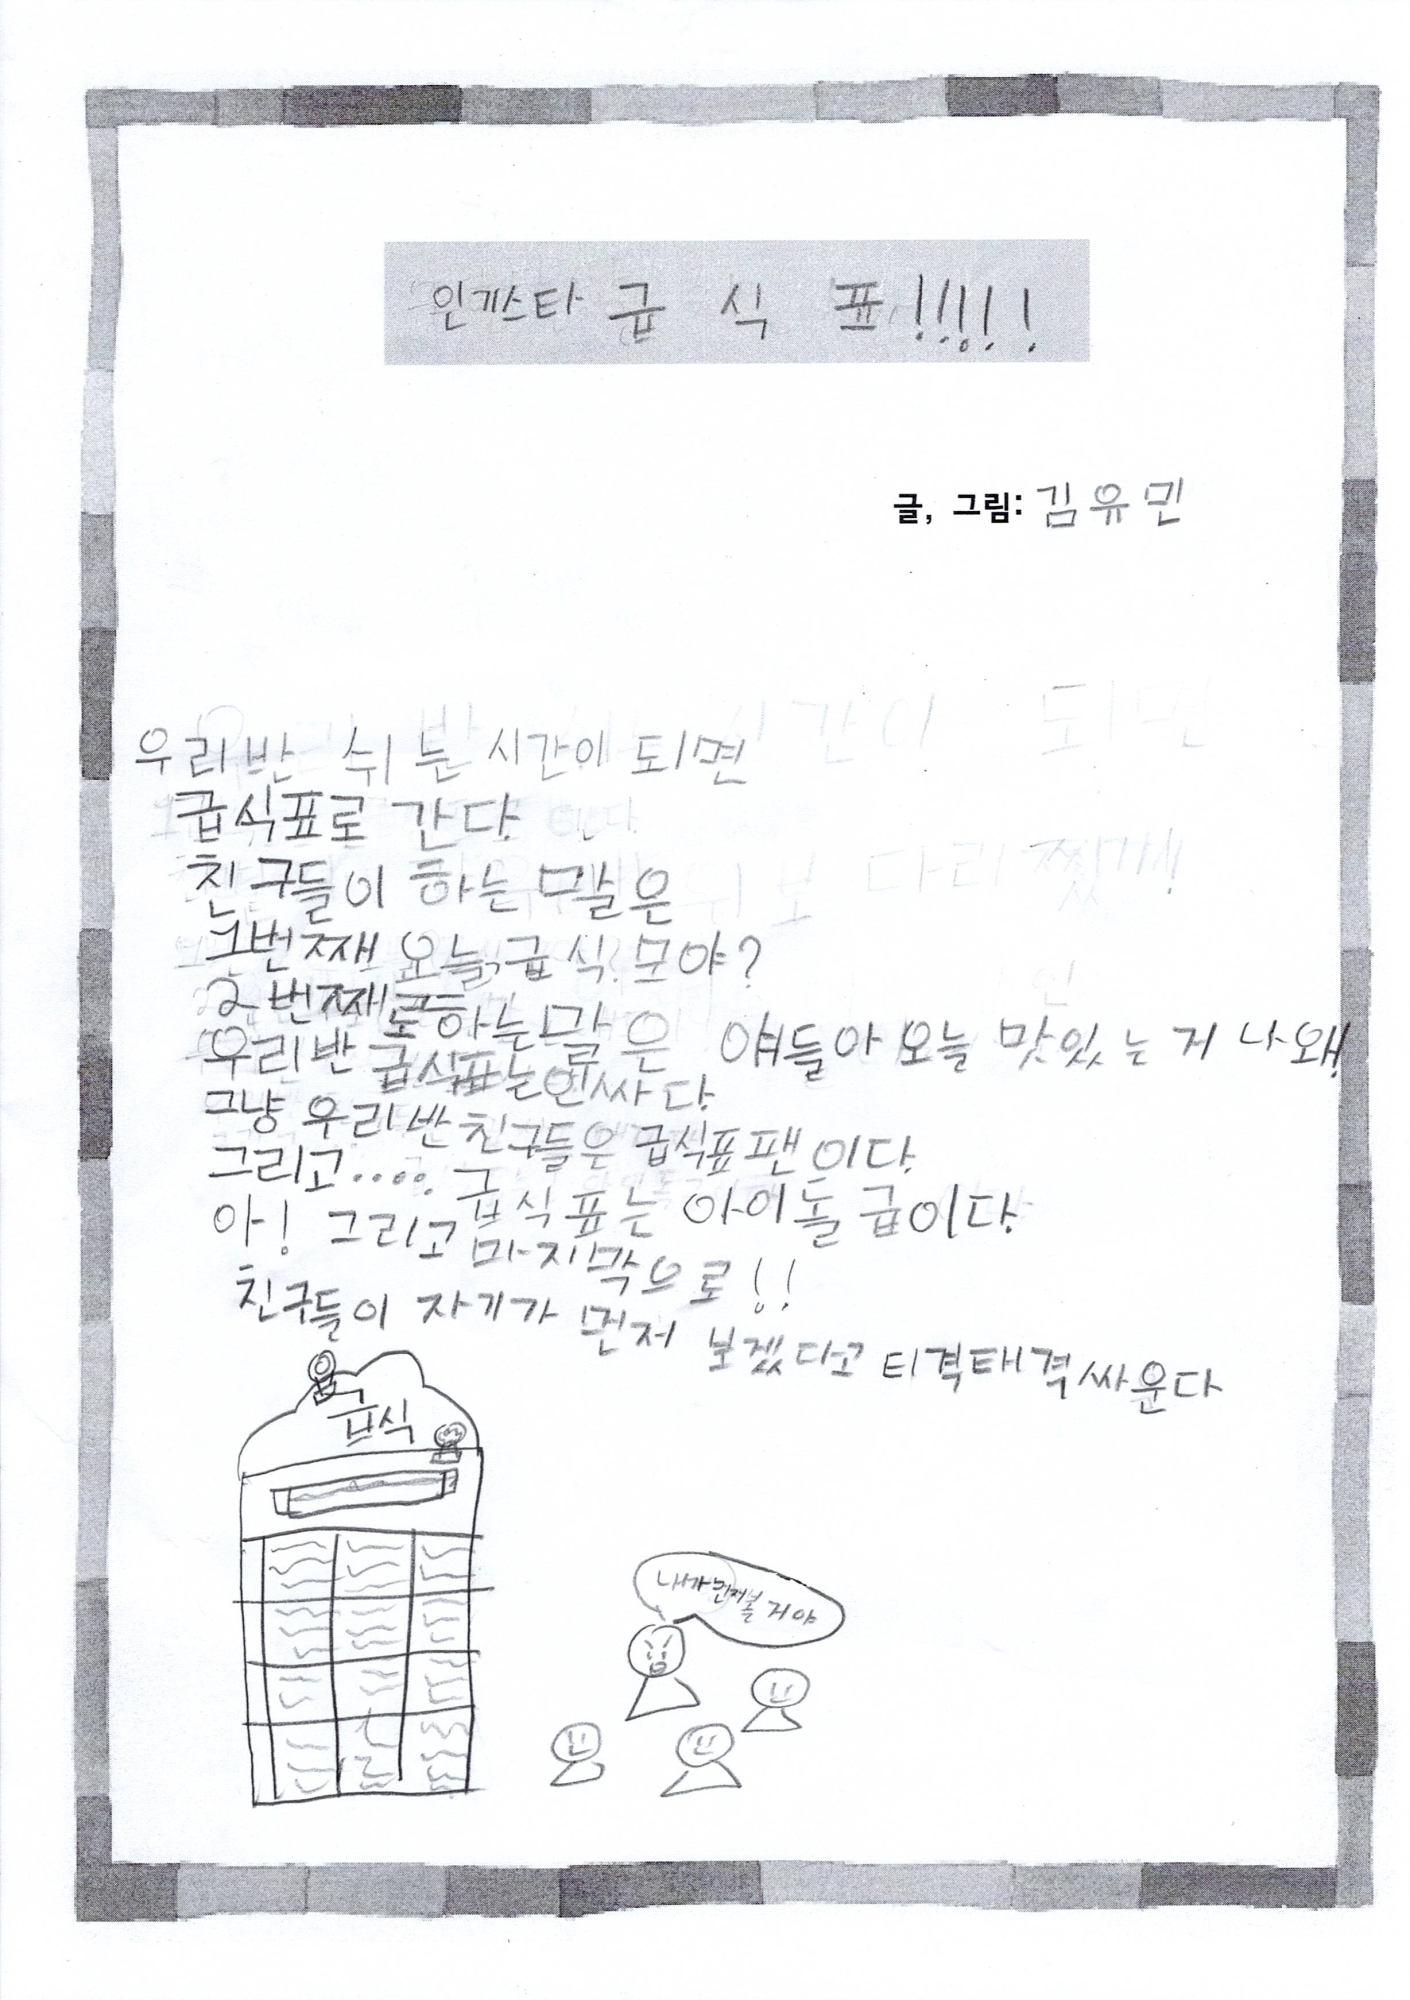 인기스타 급 식 표!!!!!
글, 그림: 김유민
우리반 쉬는 시간이 되면
급식표로 간다
친구들이 하는 말은
1번째 오늘 급식 모야?
2번째로 하는 말 은 얘들아 오늘 맛있는 거 나왜!
우리반 급식표는 인싸다
그냥 우리반 친구들은 급식표 팬이다
그리고.... 급식표는 아이돌 급이다
아! 그리고 마지막으로!!
친구들이 자기가 먼저 보겠다고 티격태격 싸운다
급식
내가 먼저 볼 거야